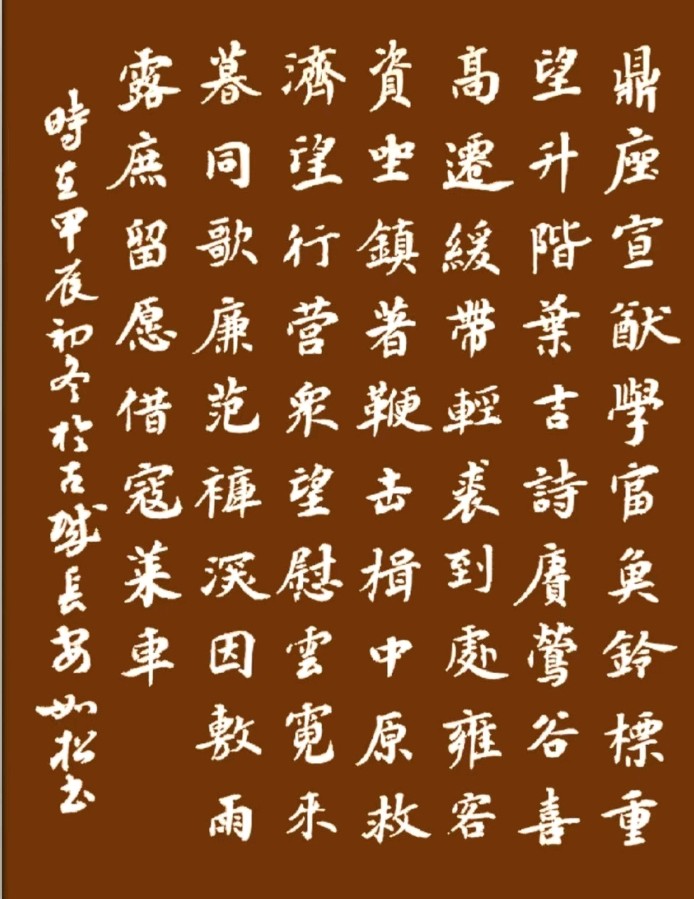 鼎座宣猷學富奐鈴標重
望升階葉吉詩賡鶯谷喜
高遷緩帶輕裘到處雍容
資坐鎮著鞭击楫中原救
濟望行营衆望慰雲霓来
暮同歌廉范褲深因敷雨
露庶留愿借寇莱車
時在甲辰初冬於古城長安如松书